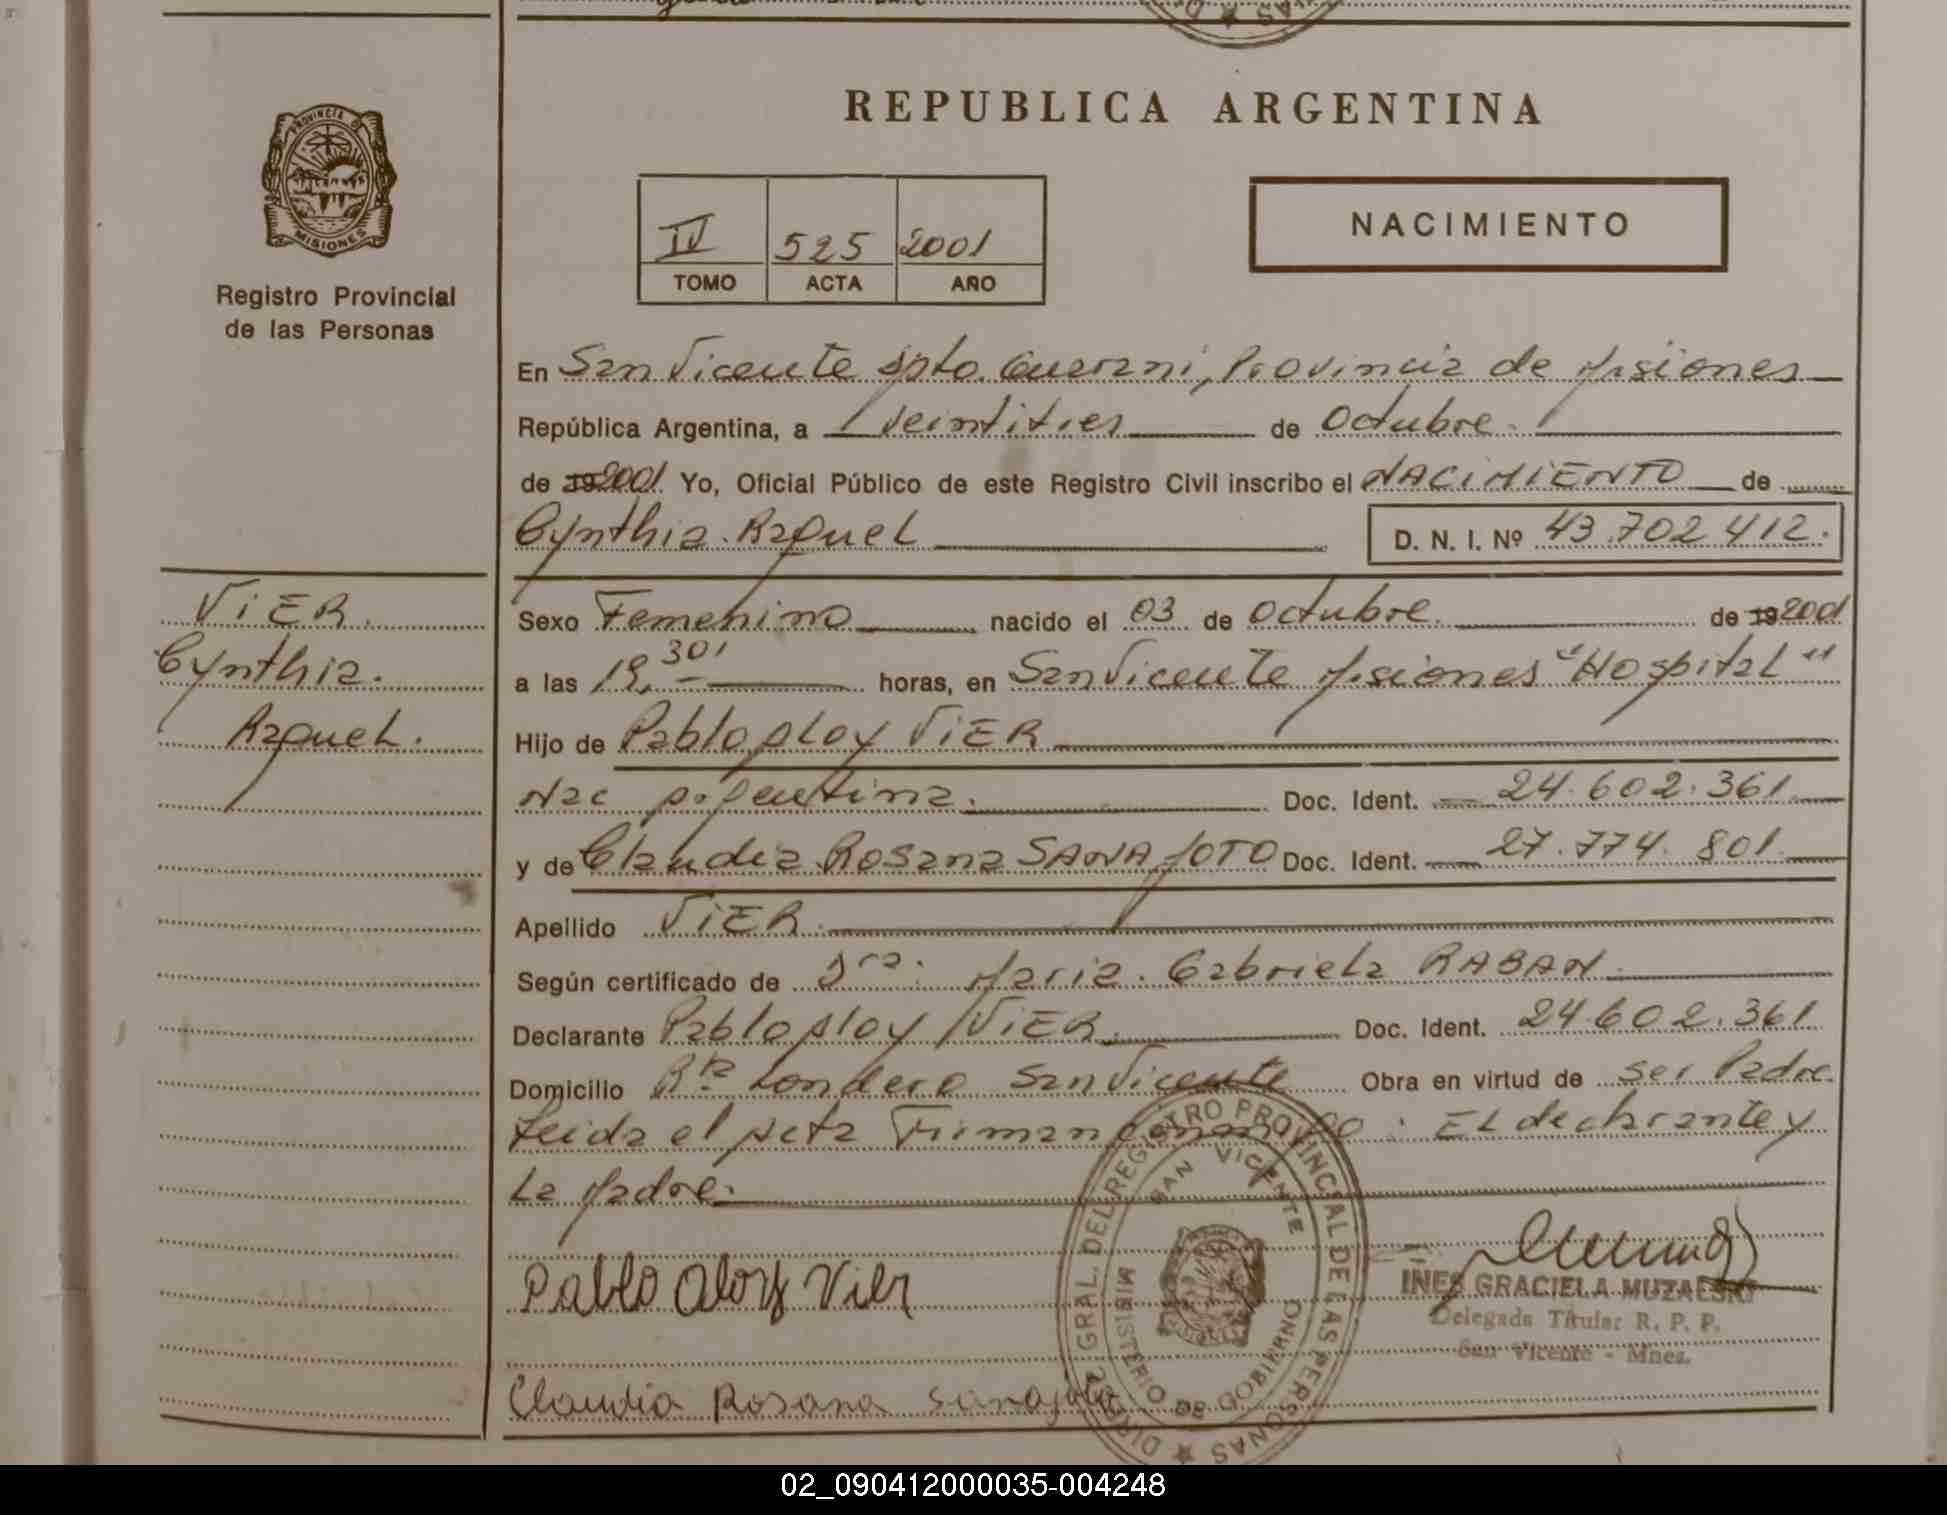 REPUBLICA ARGENTINA
PROVINCIA DE
MISIONES
Registro Provincial
de las Personas
IV 525 2001
TOMO ACTA AÑO
NACIMIENTO
En San Vicente Dpto. Guarani, Provincia de Misiones
República Argentina, a Veintitres de Octubre
de 19 2001 Yo, Oficial Público de este Registro Civil inscribo el NACIMIENTO de
Cynthia Raquel D. N. I. Nº 43.702.412.
VIER.
Cynthia.
Raquel.
Sexo Femenino nacido el 03 de Octubre. de 19 2001
a las 19,30' horas, en San Vicente Misiones "Hospital"
Hijo de Pablo Aloy VIER
Nac Argentina. Doc. Ident. 24.602.361
y de Claudia Rosana SANAJOTO Doc. Ident. 27.774.801
Apellido VIER
Según certificado de Dra. Maria Gabriela RABAN
Declarante Pablo Aloy VIER Doc. Ident. 24.602.361
Domicilio Londero San Vicente Obra en virtud de ser Padre
Leida el Acta Firman conmigo: El declarante y
La Madre.
Pablo Aloy Vier
Claudia Rosana Sanajoto
DIREC. GRAL. DEL REGISTRO PROVINCIAL DE LAS PERSONAS
SAN VICENTE
MINISTERIO DE GOBIERNO
INES GRACIELA MUZALSKI
Delegada Titular R. P. P.
San Vicente - Mnes.
02_090412000035-004248